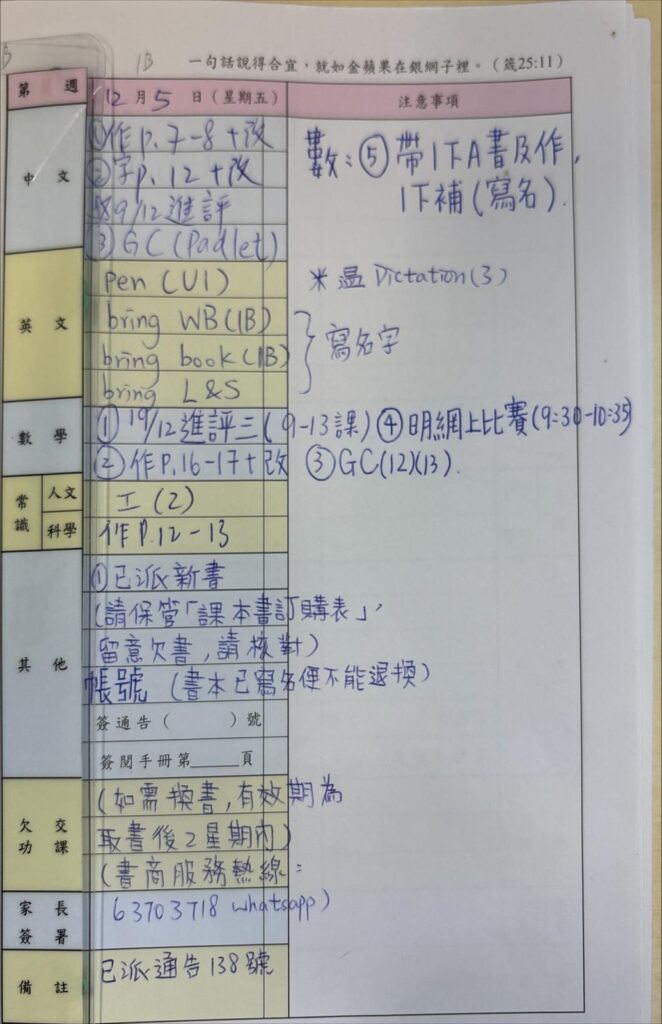 1B 一句話說得合宜，就如金蘋果在銀網子裡。（箴25:11）
第 週 12 月 5 日（星期五） 注意事項
中文
①作P.7-8+改
②字P.12+改
9/12進評
③GC(Padlet)
數：⑤帶1下A書及作，
1下補(寫名).
英文
Pen (U1)
bring WB(1B)
bring book(1B)
bring L&S
*溫 Dictation(3)
寫名字
數學
①19/12進評三(9-13課) ④明網上比賽(9:30-10:35)
②作P.16-17+改 ③GC(12)(13).
常識 人文 工(2)
科學 作P.12-13
其他
①已派新書
(請保管「課本書訂購表」，
留意欠書,請核對)
帳號 (書本已寫名便不能退換)
簽通告（ ）號
簽閱手冊第______頁
欠交功課
(如需換書,有效期為
取書後2星期內)
(書商服務熱線:
家長簽署
63703718 whatsapp)
備註
已派通告138號